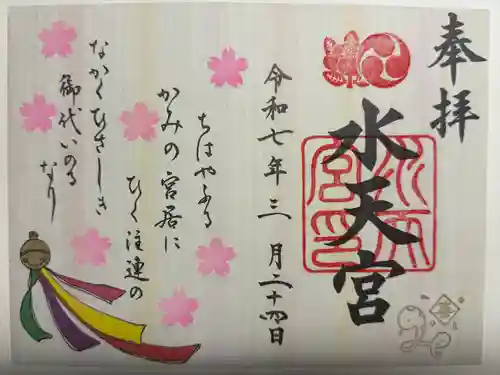 奉拝
水天宮
令和七年三月二十四日
ちはやふる
かみの宮居に
ひく注連の
なかくひさしき
御代いのる
なり